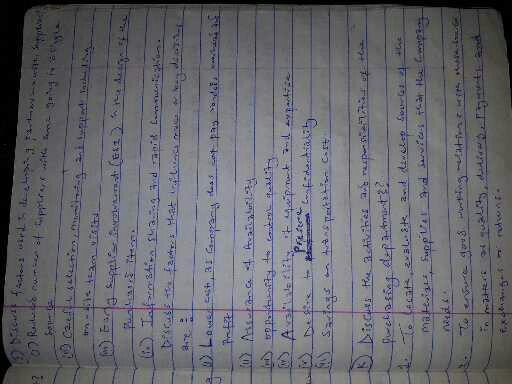 g) Discuss factors used in developing partnership with Suppliers
i) Reduced number of Suppliers with some going to a Single
Source
ii) Careful selection, monitoring and support including
on-site team visits
iii) Early Supplier Involvement (ESI) in the design of the
Purchased item.
iv) Information Sharing and rapid communication.
Discuss the factors that influence make or buy decisions
are:
i) Lower cost, as Company does not pay vendor,
Profit
ii) Assurance of availability
iii) opportunity to control quality
iv) Availability of equipment and expertise
v) Desire to Preserve Confidentiality
vi) Savings on transportation Cost
h) Discuss the activities and responsibilities of the
Purchasing department's?
1. To locate, evaluate and develop Sources of the
materials, Supplies and Services that the Company
needs.
2. To ensure good working relations with
in matters as quality, delivery, Payments and
exchanges or returns.